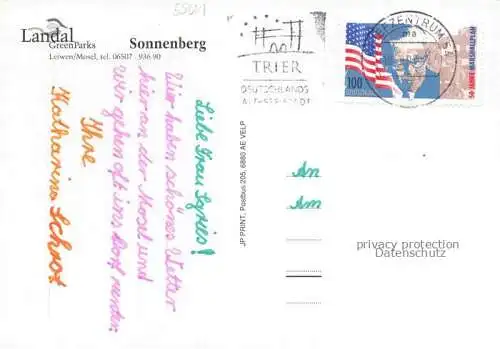 55011
Landal
GreenParks
Leiwen/Mosel, tel. 06507 - 936 90
Sonnenberg
Liebe Frau
Wir haben schönes Wetter
hier an der Mosel und
wir gehen oft ins Dorf runter.
Ihre
Katharina Schrot
TRIER
DEUTSCHLANDS
ÄLTESTE STADT
JP PRINT, Postbus 205, 6880 AE VELP
BRIEFZENTRUM
100
50 JAHRE MARSHALLPLAN
An
Am
privacy protection
Datenschutz